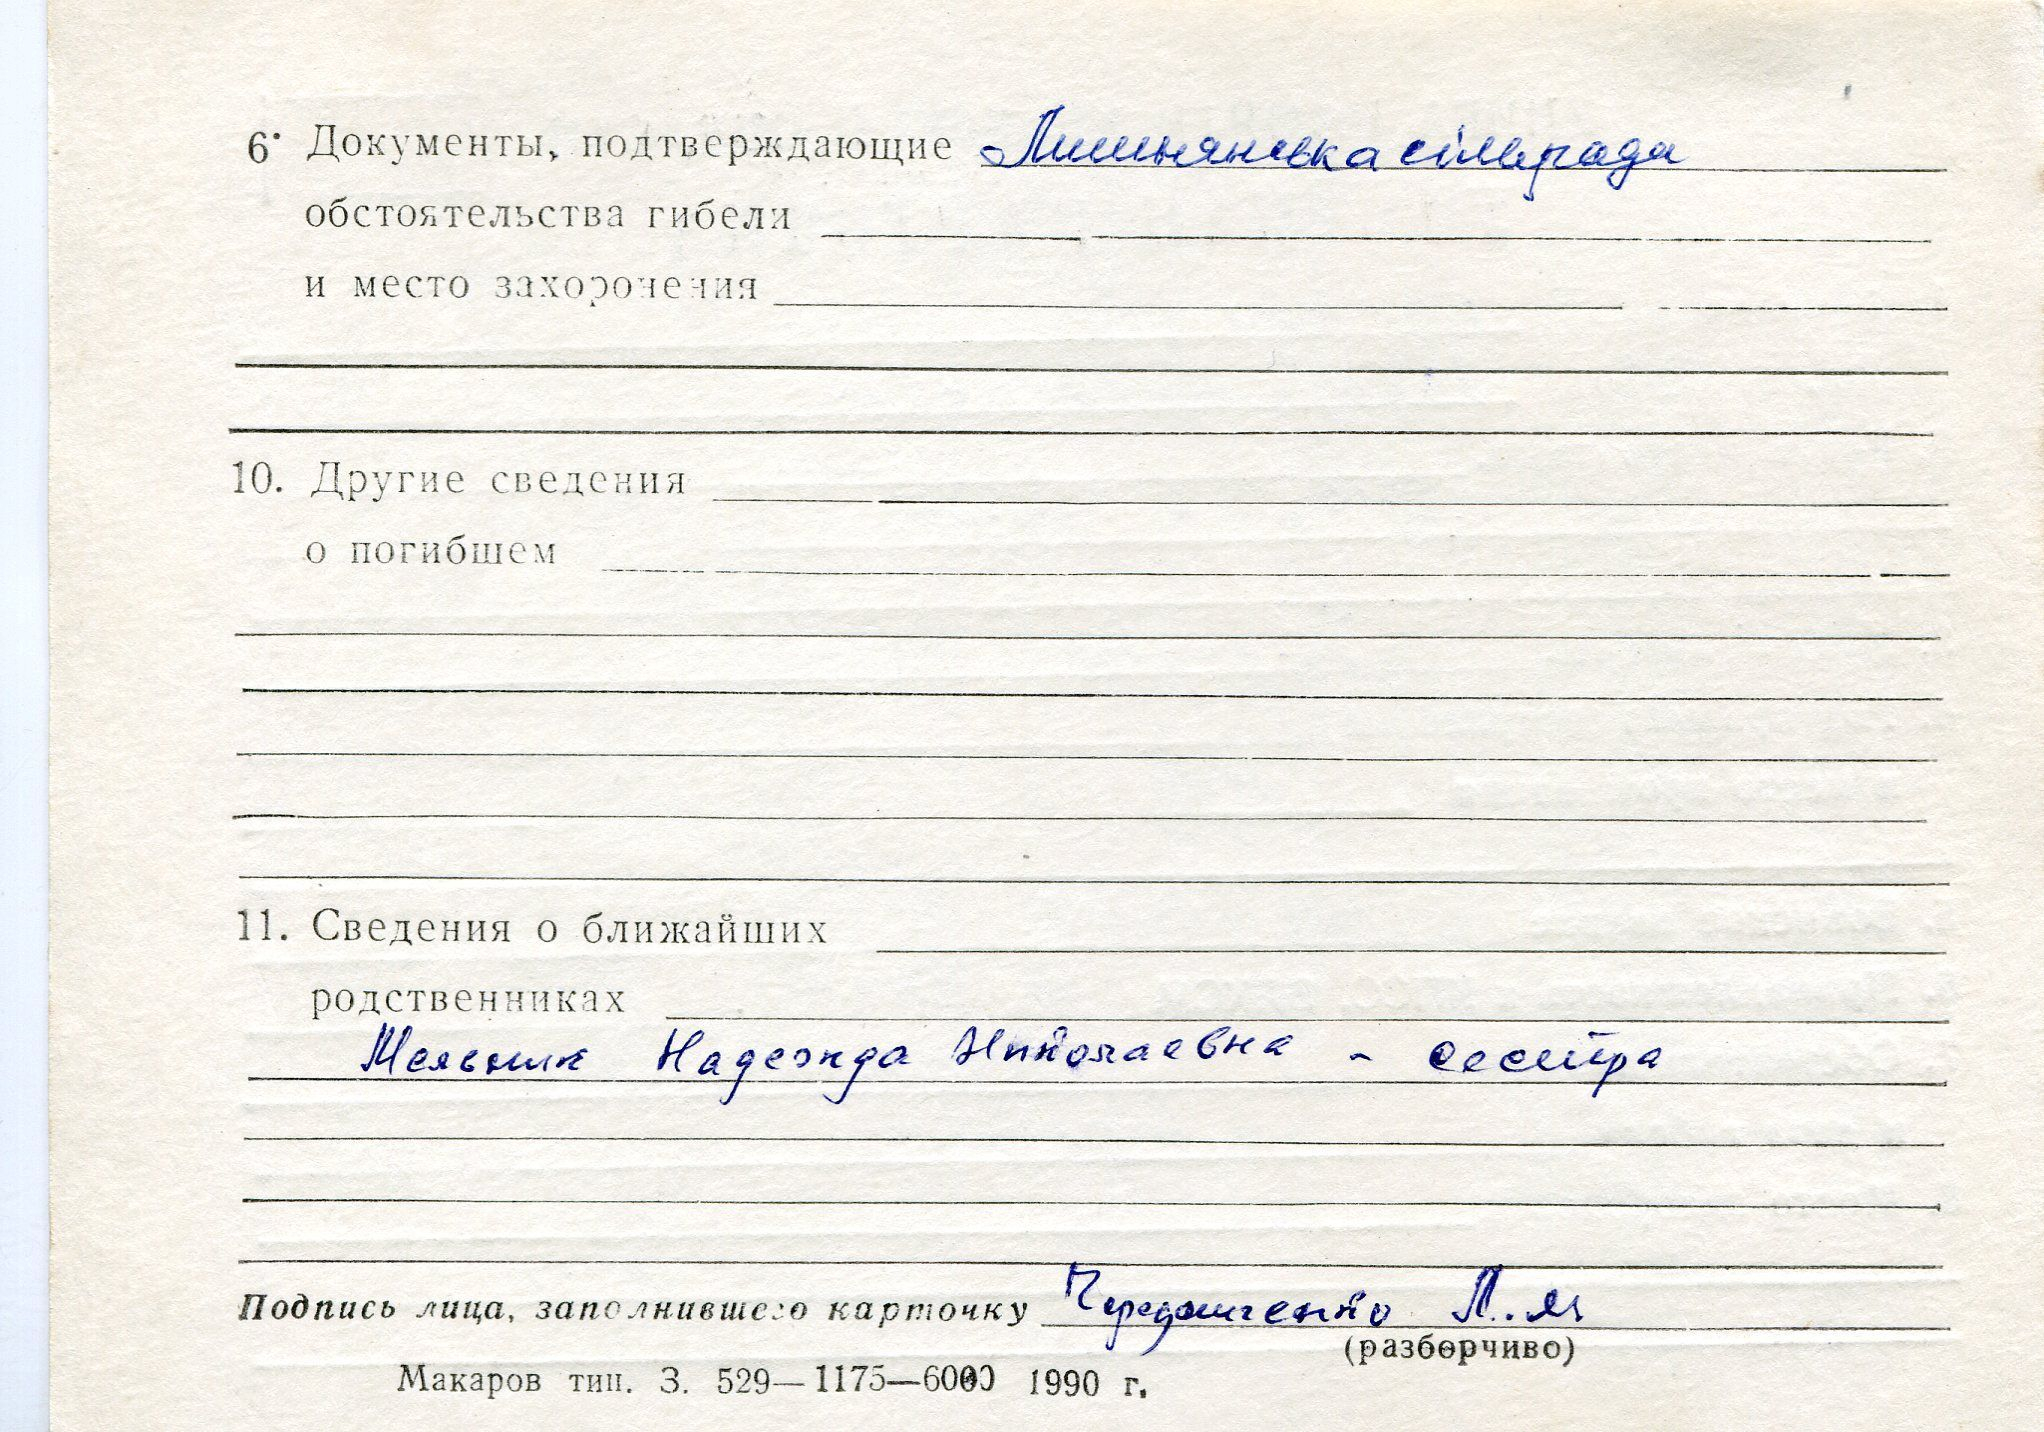 6. Документы, подтверждающие сільрада
обстоятельства гибели
и место захоронения
10. Другие сведения
о погибшем
11. Сведения о ближайших
родственниках
Мельник Надежда Николаевна - сестра
Подпись лица, заполнившего карточку Л. М.
(разборчиво)
Макаров тип. З. 529—1175—6000 1990 г.